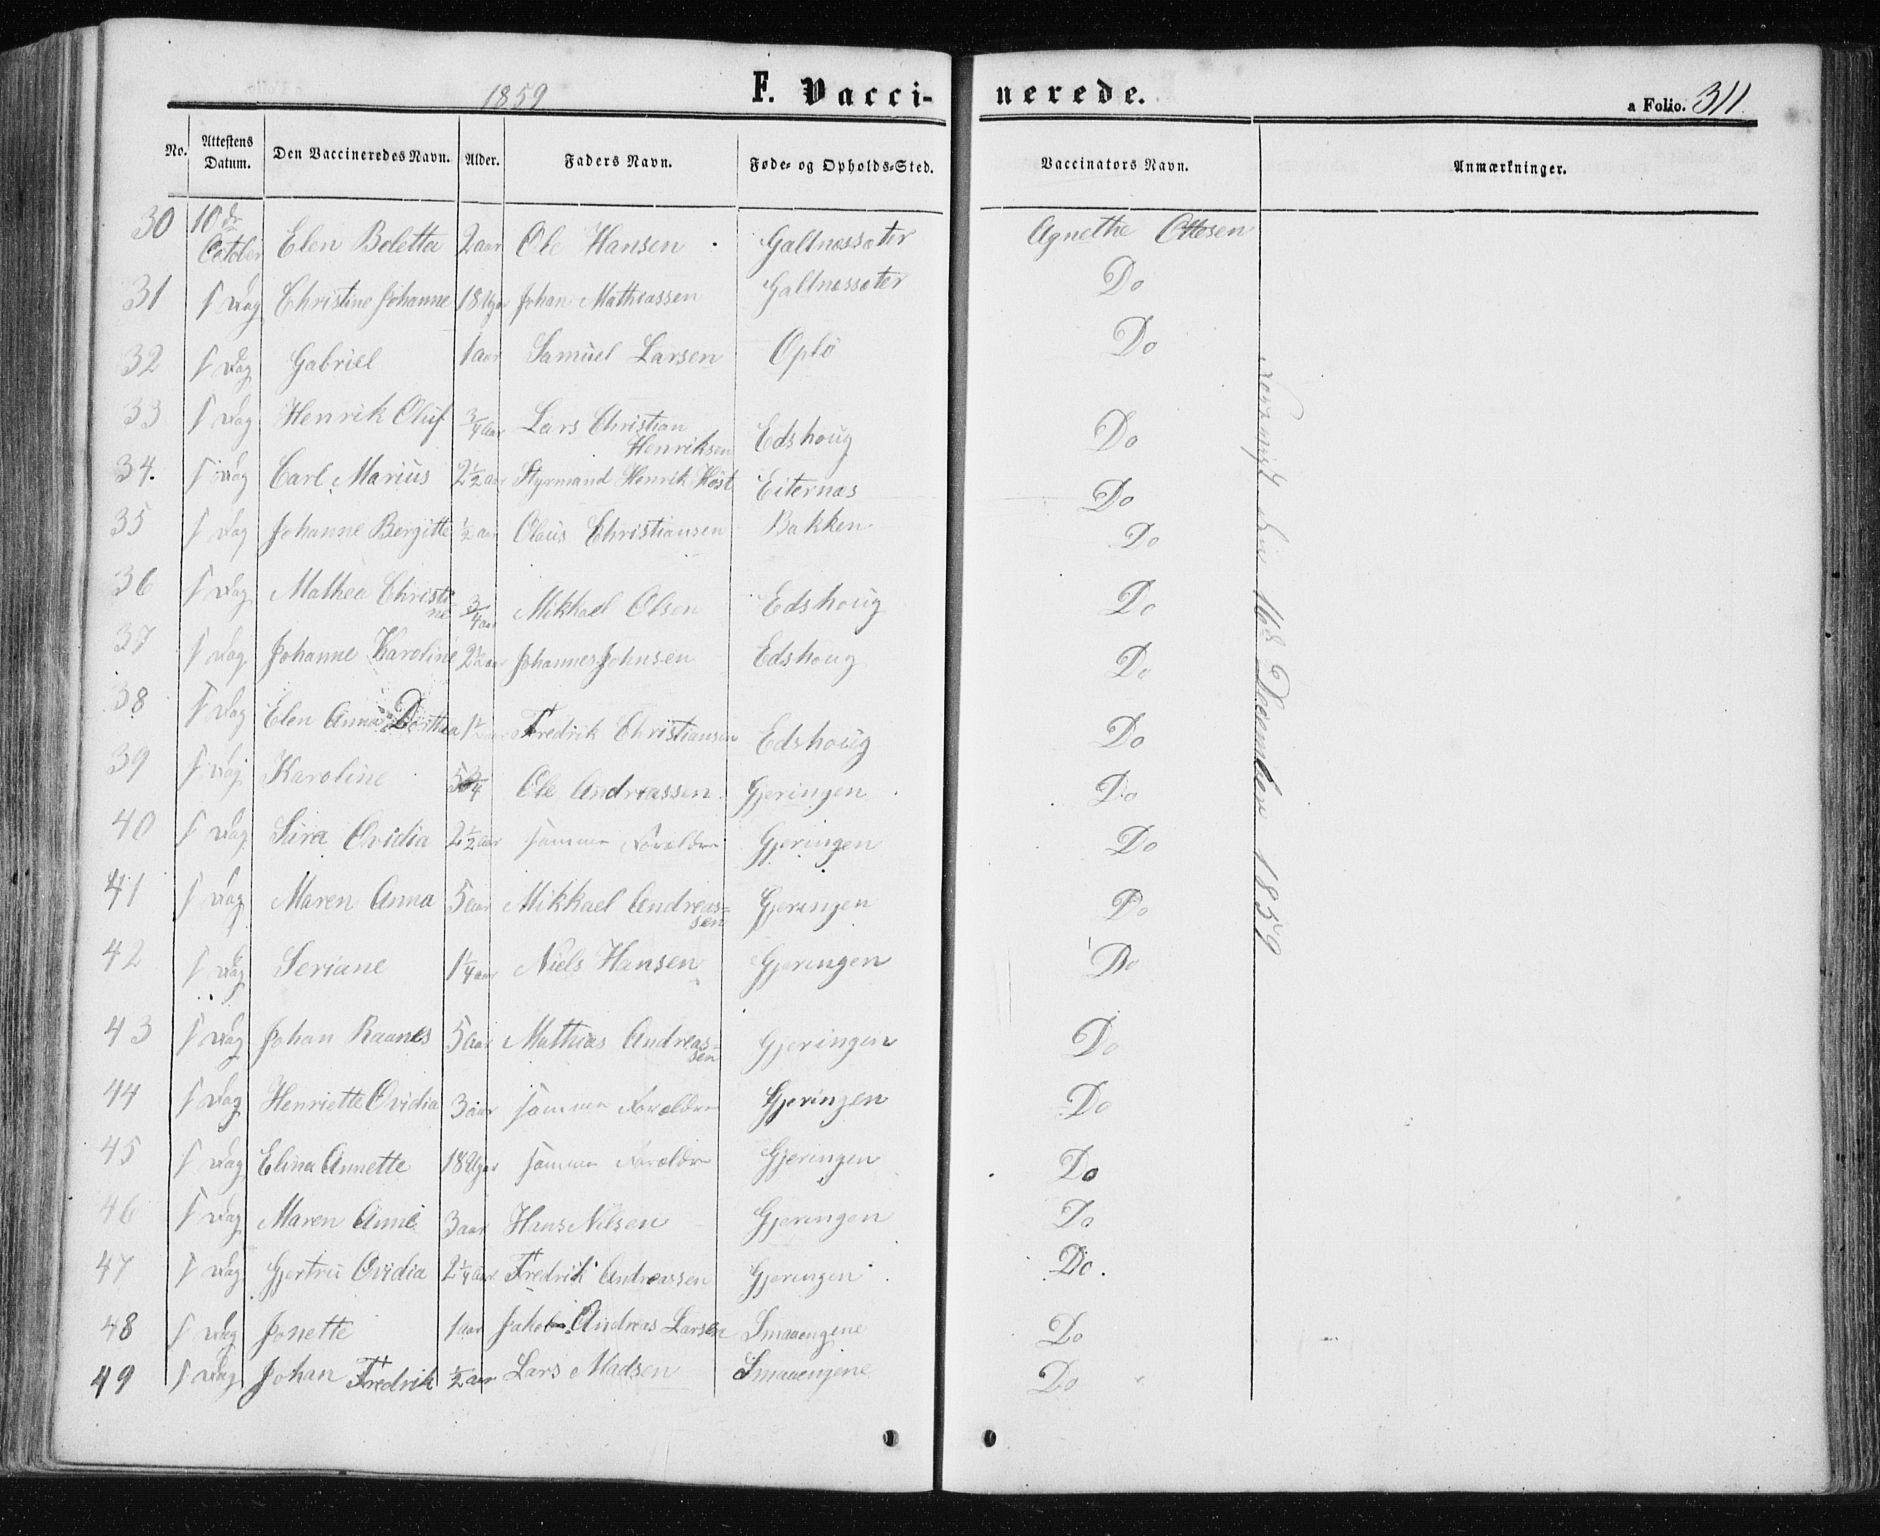 1859 F. Vacci- nerede. a Folio. 311.
No. Attestens Datum. Den Vaccineredes Navn. Alder. Faders Navn. Føde- og Opholds-Sted. Vaccinators Navn. Anmærkninger.
30 10de October Elen Boletta 2 aar Ole Hansen Galtnæssæter Agnethe Ottesen
31 s Dag Christine Johanne 18 Uger Johan Mathiassen Galtnæssæter Do
32 s Dag Gabriel 1 aar Samuel Larsen Oplö Do
33 s Dag Henrik Oluf 3/4 aar Lars Christian Henriksen Edshoug Do
34. s Dag Carl Marius 2 1/2 aar Styrmand Henrik Höst Eiternæs Do
35 s Dag Johanne Bergitte 1/2 aar Olaus Christiansen Bakken Do
36 s Dag Mathea Christine 3/4 aar Mikkael Olsen Edshoug Do
37 s Dag Johanne Karoline 2 1/2 aar Johannes Johnsen Edshoug Do
38 s Dag Elen Anna Dorthea 1 1/2 aar Fredrik Christiansen Edshoug Do
39 s Dag Karoline 5 3/4 Ole Andreassen Gjeringen Do
40 s Dag Sira Ovidia 2 1/2 aar samme Forældre Gjeringen Do
41 s Dag Maren Anna 5 aar Mikkael Andreas=sen Gjeringen Do
42 s Dag Seriane 1 1/4 aar Niels Hansen Gjeringen Do
43 s Dag Johan Raanes 5 aar Mathias Andreas=sen Gjeringen Do
44 s Dag Henriette Ovidia 3 aar samme Forældre Gjeringen Do
45 s Dag Elina Annette 18 Uger samme Forældre Gjeringen Do
46 s Dag Maren Anne 3 aar Hans Nilsen Gjeringen Do
47 s Dag Gjertru Ovidia 2 1/4 aar Fredrik Andreassen Gjeringen Do.
48 s Dag Jonette 1 aar Jakob Andreas Larsen Smaaengene Do
49 s Dag Johan Fredrik 1/2 aar Lars Madsen Smaaengene Do
den 16d December 1859